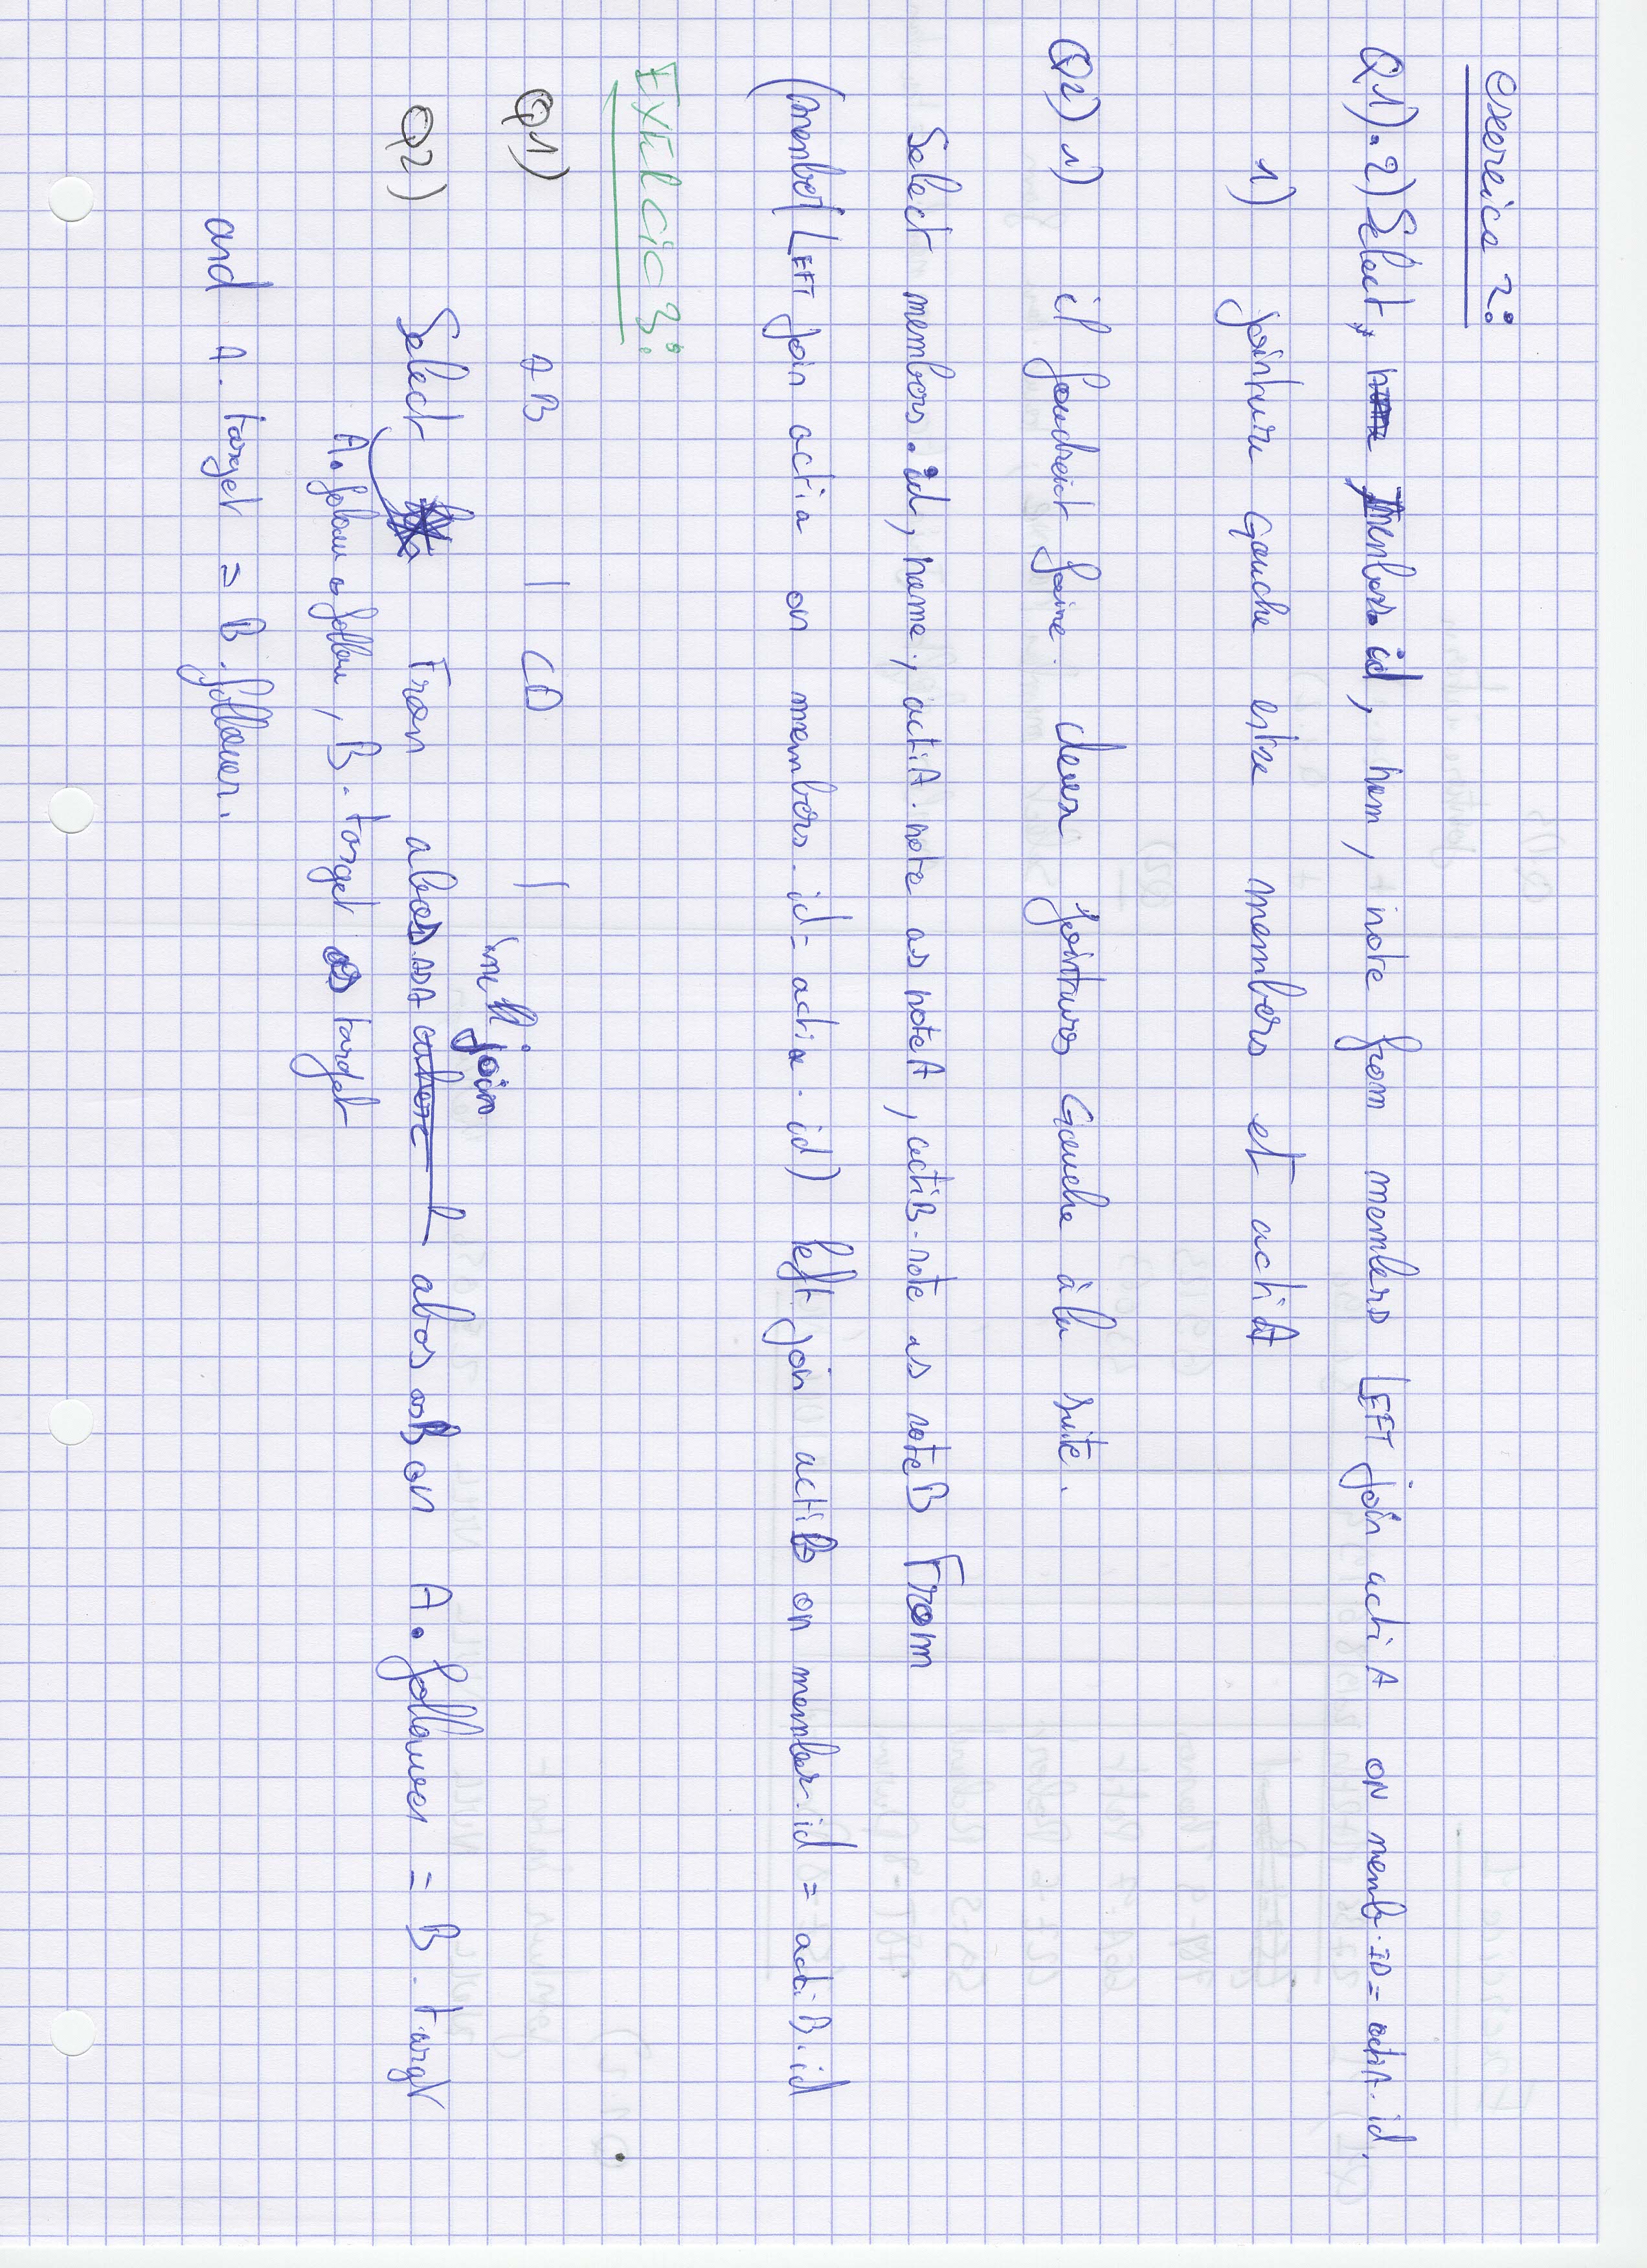 exercice 2:
Q1). 2) Select, members.id, nom, note from members LEFT join acti A ON memb.ID = actiA.id.
1) jointure Gauche entre members et actiA
Q2) 1) il foudreit faire deux jointures Gauche à la suite.
Select members.id, name, actiA.note as noteA, actiB.note as noteB From
(member LEFT join actia on members.id = actia.id) left join actiB on member.id = actiB.id
EXERCIC 3:
Q1) AB | CD |
inell join
Q2) Select From abos as A abos as B on A.follower = B.target
A.folow as follow, B.target as target
and A.target = B.follower.